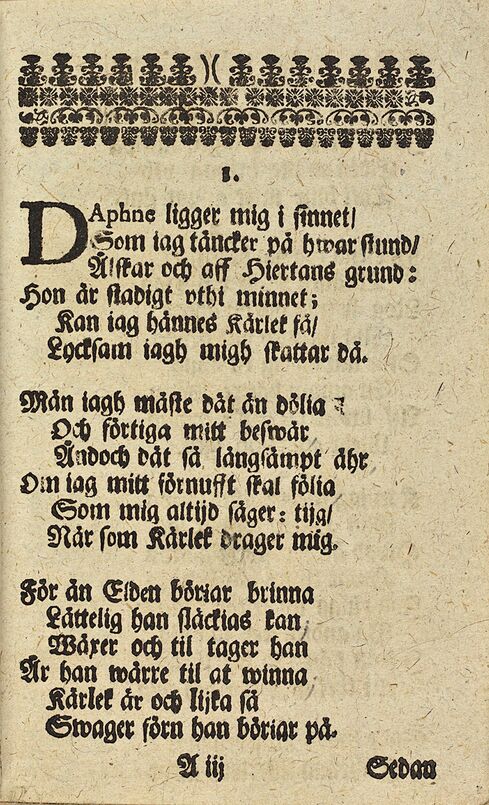 1.
DAphne ligger mig i sinnet/
Som iag täncker på hwar stund/
Älskar och aff Hiertans grund:
Hon är stadigt vthi minnet;
Kan iag hännes Kärlek få/
Lycksam iagh migh skattar då.
Män iagh måste dät än dölia
Och förtiga mitt beswär
Ändoch dät så långsämpt ähr
Om iag mitt förnufft skal fölia
Som mig altijd säger: tijg/
När som Kärlek drager mig.
För än Elden böriar brinna
Lättelig han släckias kan
Wäxer och til tager han
Är han wärre til at winna
Kärlek är och lijka så
Swager förn han böriar på.
A iij Sedan